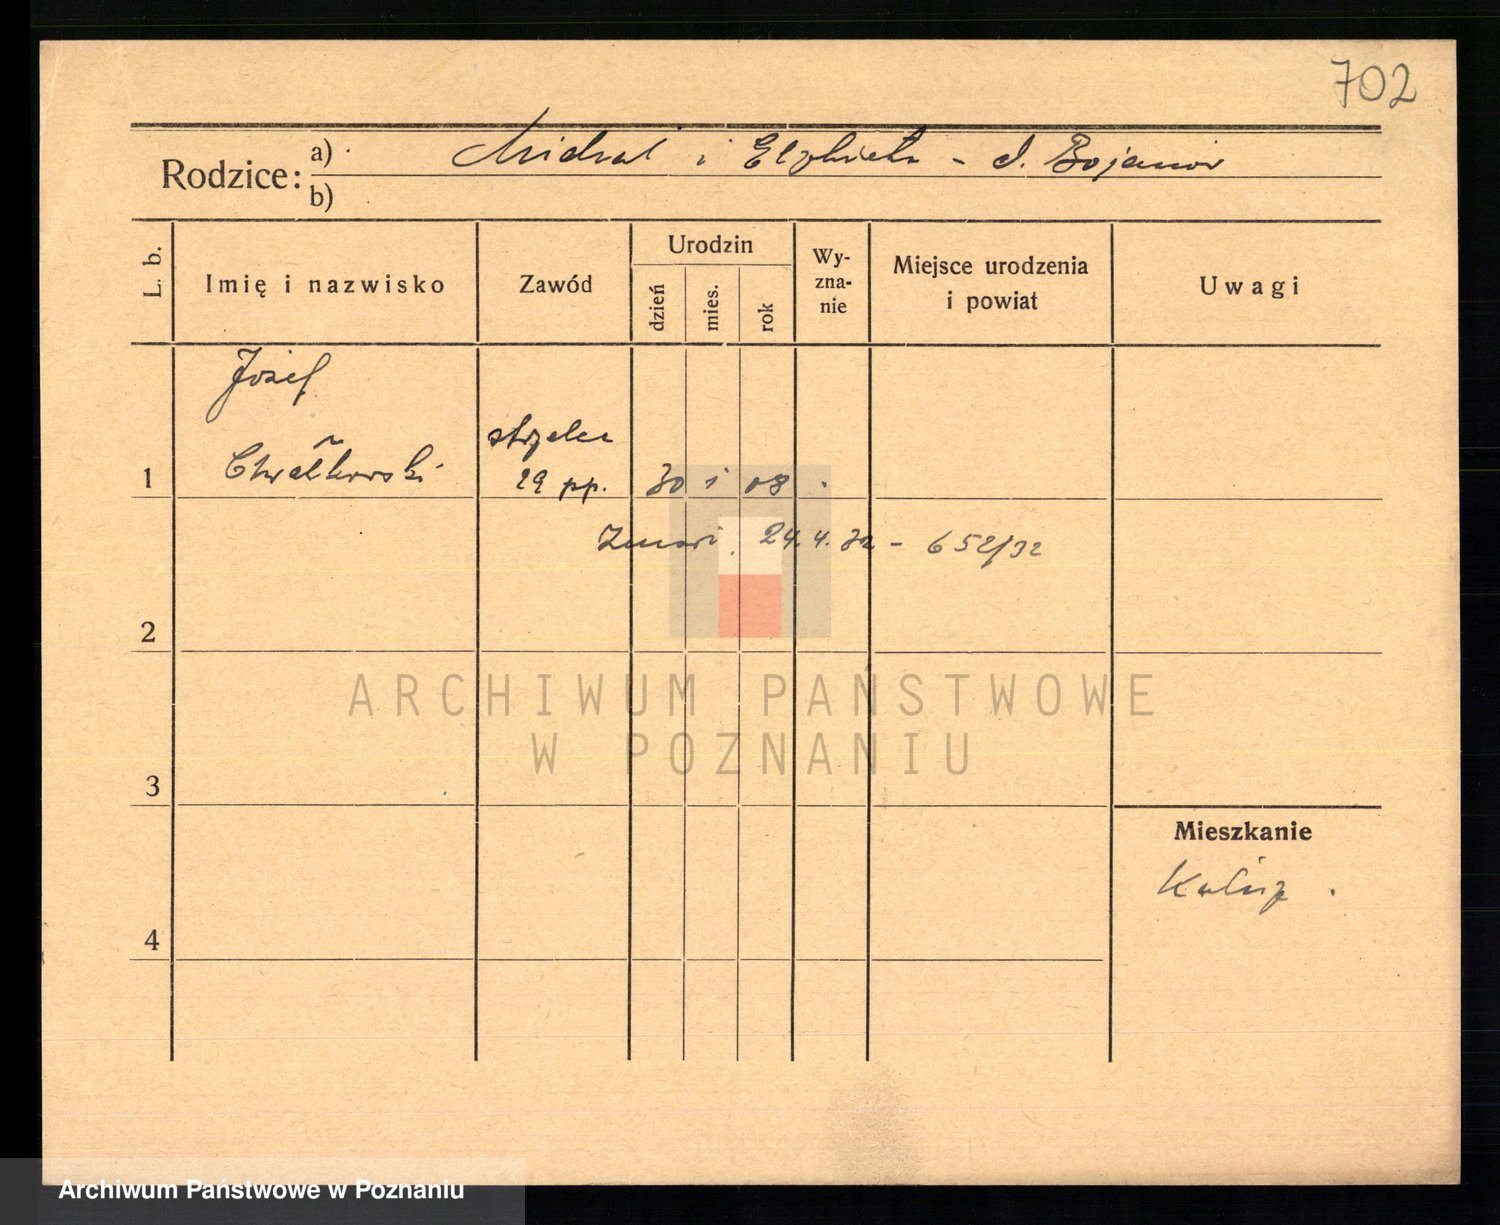 702
Rodzice: a) Michał i Elżbieta - d. Bojanów
b)
L. b. Imię i nazwisko Zawód Urodzin dzień mies. rok Wy-zna-nie Miejsce urodzenia i powiat Uwagi
Józef
strzelec
1 Chwałkowski 29 pp. 30 1 08
24.4.32 - 652/32
2
ARCHIWUM PAŃSTWOWE
W POZNANIU
3
Mieszkanie
Kalisz.
4
Archiwum Państwowe w Poznaniu